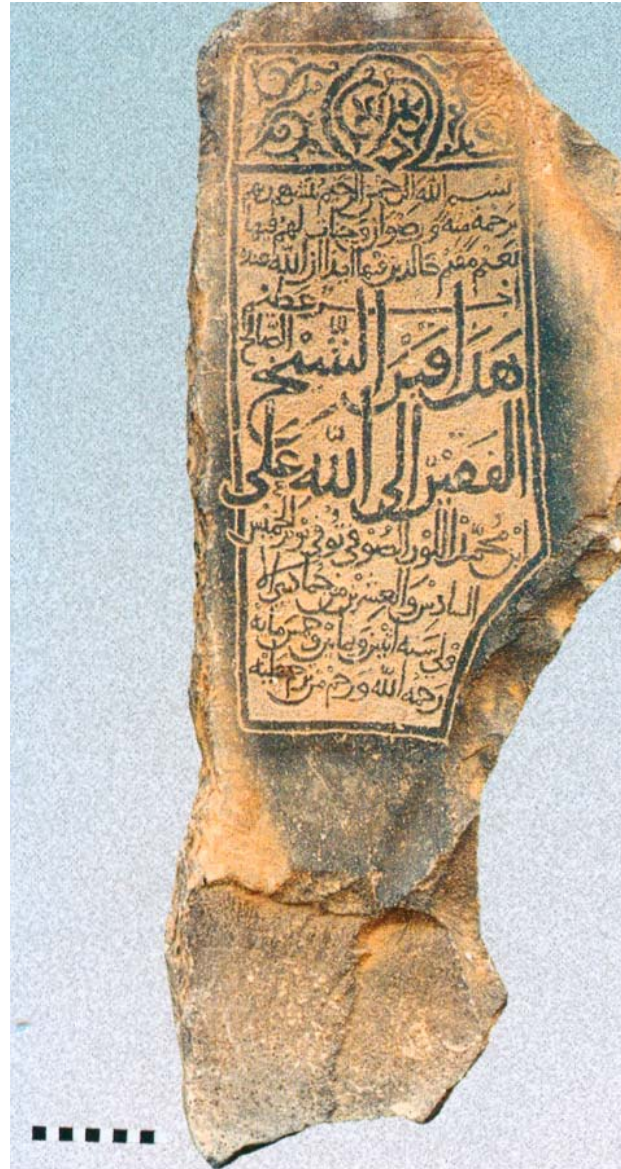 بسم الله الرحمن الرحيم يبشرهم ربهم
برحمة منه ورضوان وجنات لهم فيها
نعيم مقيم خالدين فيها ابدا ان الله عنده
اجر عظيم
هذا قبر الشيخ الصالح
الفقير الى الله علي
ابن محمد اللوز الصوفي توفي يوم الخميس
السادس والعشرين من جمادى الا
ولى سنة اثنين وثمانين وخمس مائة
رحمه الله ورحم من ترحم عليه